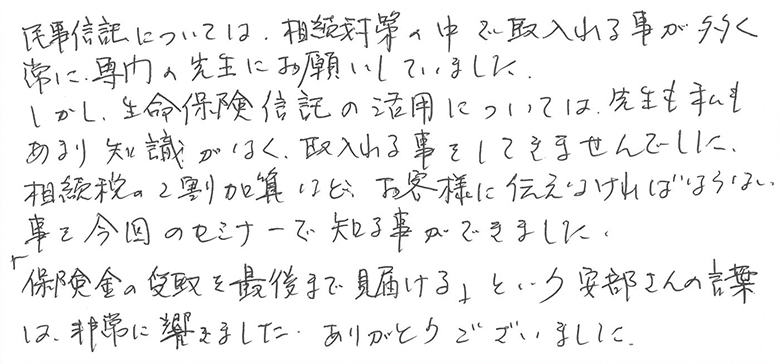 民事信託については、相続対策の中で取入れる事が多く
常に、専門の先生にお願いしていました。
しかし、生命保険信託の活用については、先生も私も
あまり知識がなく、取入れる事をしてきませんでした。
相続税の2割加算など、お客様に伝えなければならない
事を今回のセミナーで知る事ができました。
「保険金の受取を最後まで見届ける」という安部さんの言葉
は、非常に響きました。ありがとうございました。